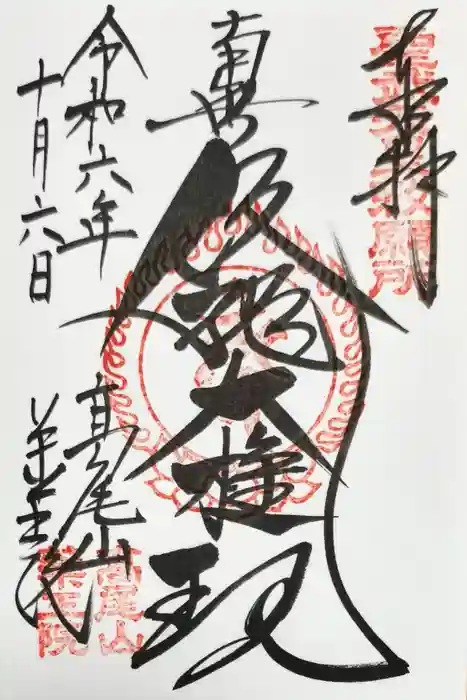 奉拝
南無飯縄大権現
令和六年
十月六日
高尾山
薬王院
高尾山
薬王院